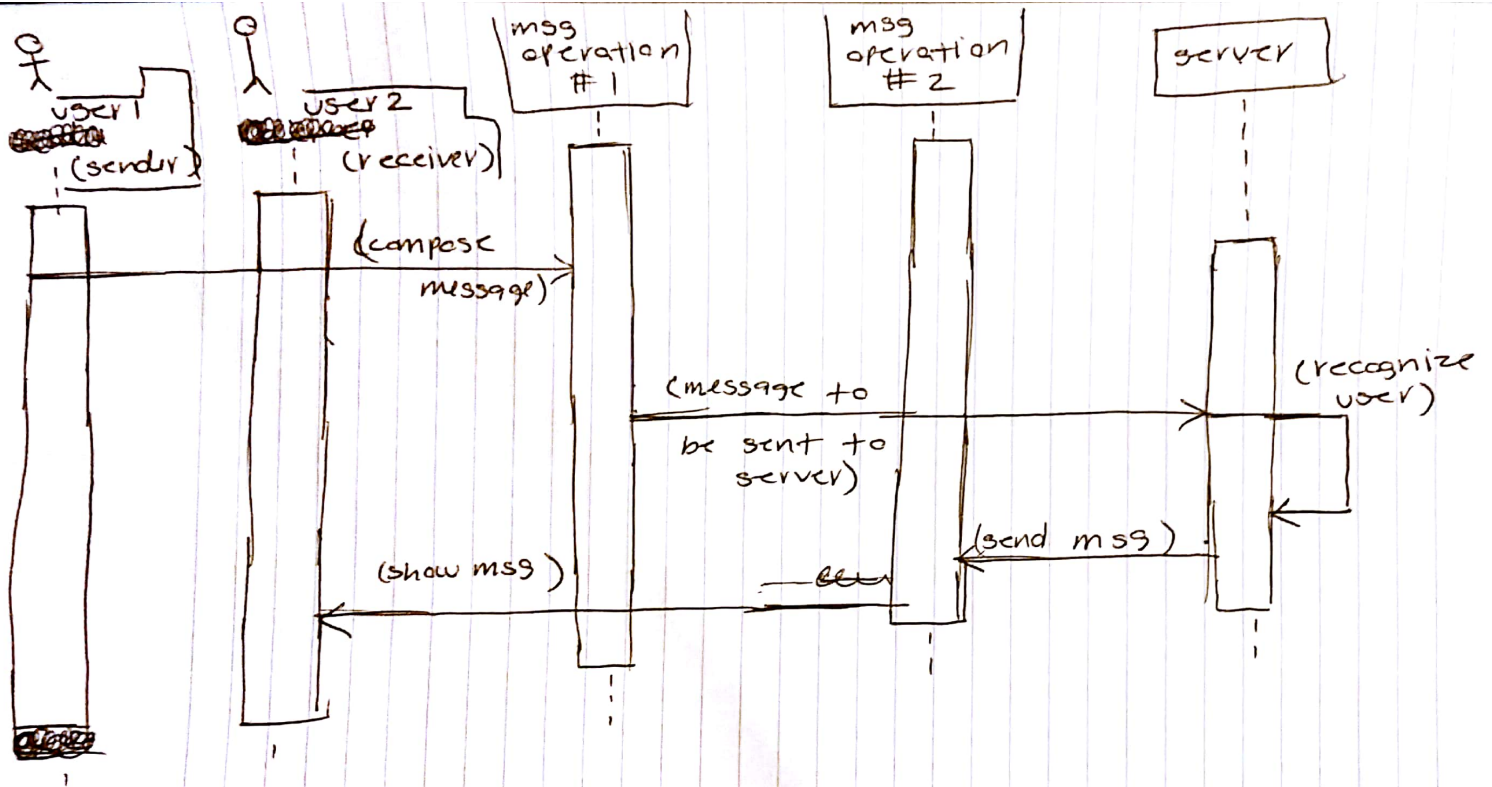 user1
(sender)
user2
(receiver)
msg
operation
# 1
msg
operation
# 2
server
(compose
message)
(message to
be sent to
server)
(recognize
user)
(send msg)
(show msg)